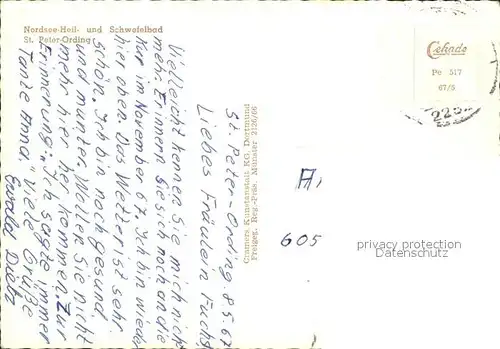 Nordsee-Heil- und Schwefelbad
St. Peter-Ording
St. Peter-Ording 8.5.67
Liebes Fräulein Fuchs
Vielleicht kennen Sie mich nicht
mehr. Erinnern Sie sich noch an die
Kur im November 67. Ich bin wieder
hier oben. Das Wetter ist sehr
schön. Ich bin noch gesund
und munter. Wollen Sie nicht
mehr hier her kommen. Zur
Erinnerung: Ich sagte immer
Tante Anna. Viele Grüße
Ewald Dietz
Cramers Kunstanstalt KG. Dortmund
Freigeg. Reg.-Präs. Münster 2126/66
Cekade
Pe 517
67/5
225
A
605
privacy protection
AnsichtskartenVersand.com